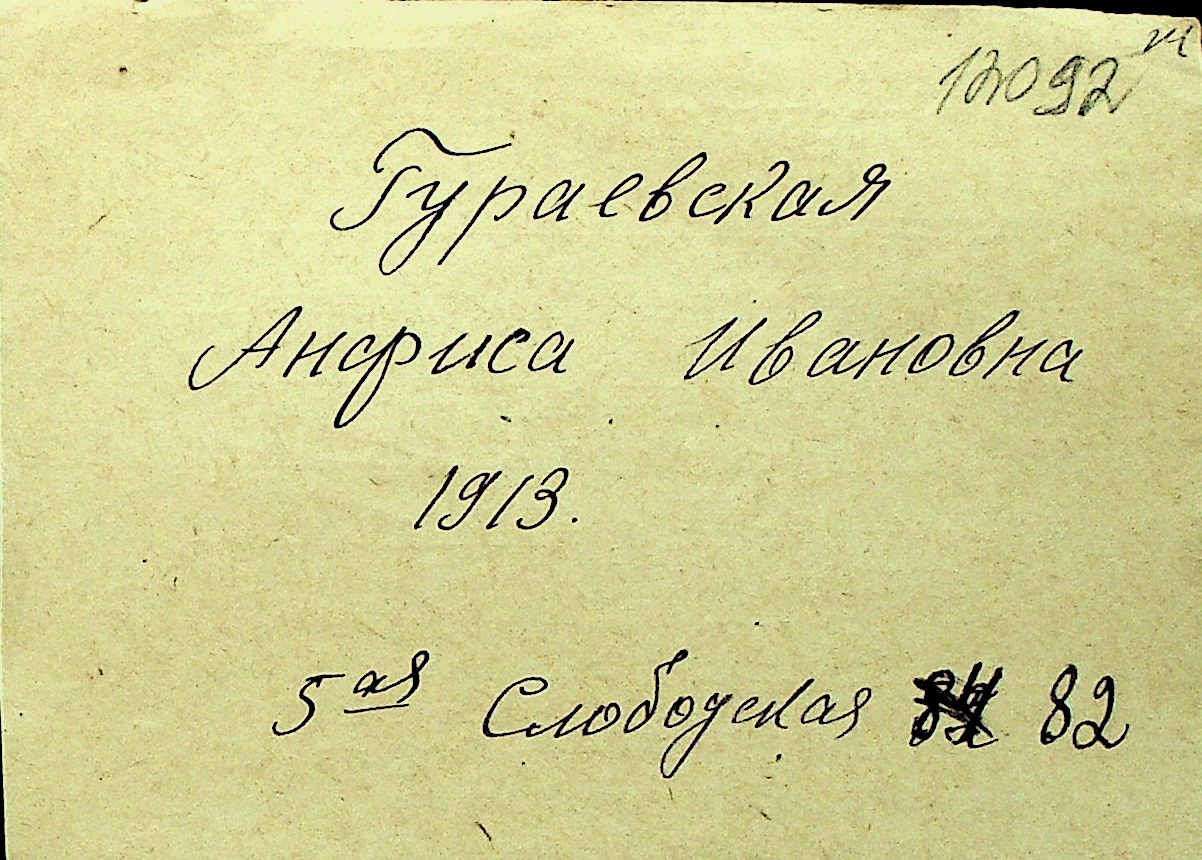 12092
Гураевская
Анфиса Ивановна
1913.
5ая Слободская 82